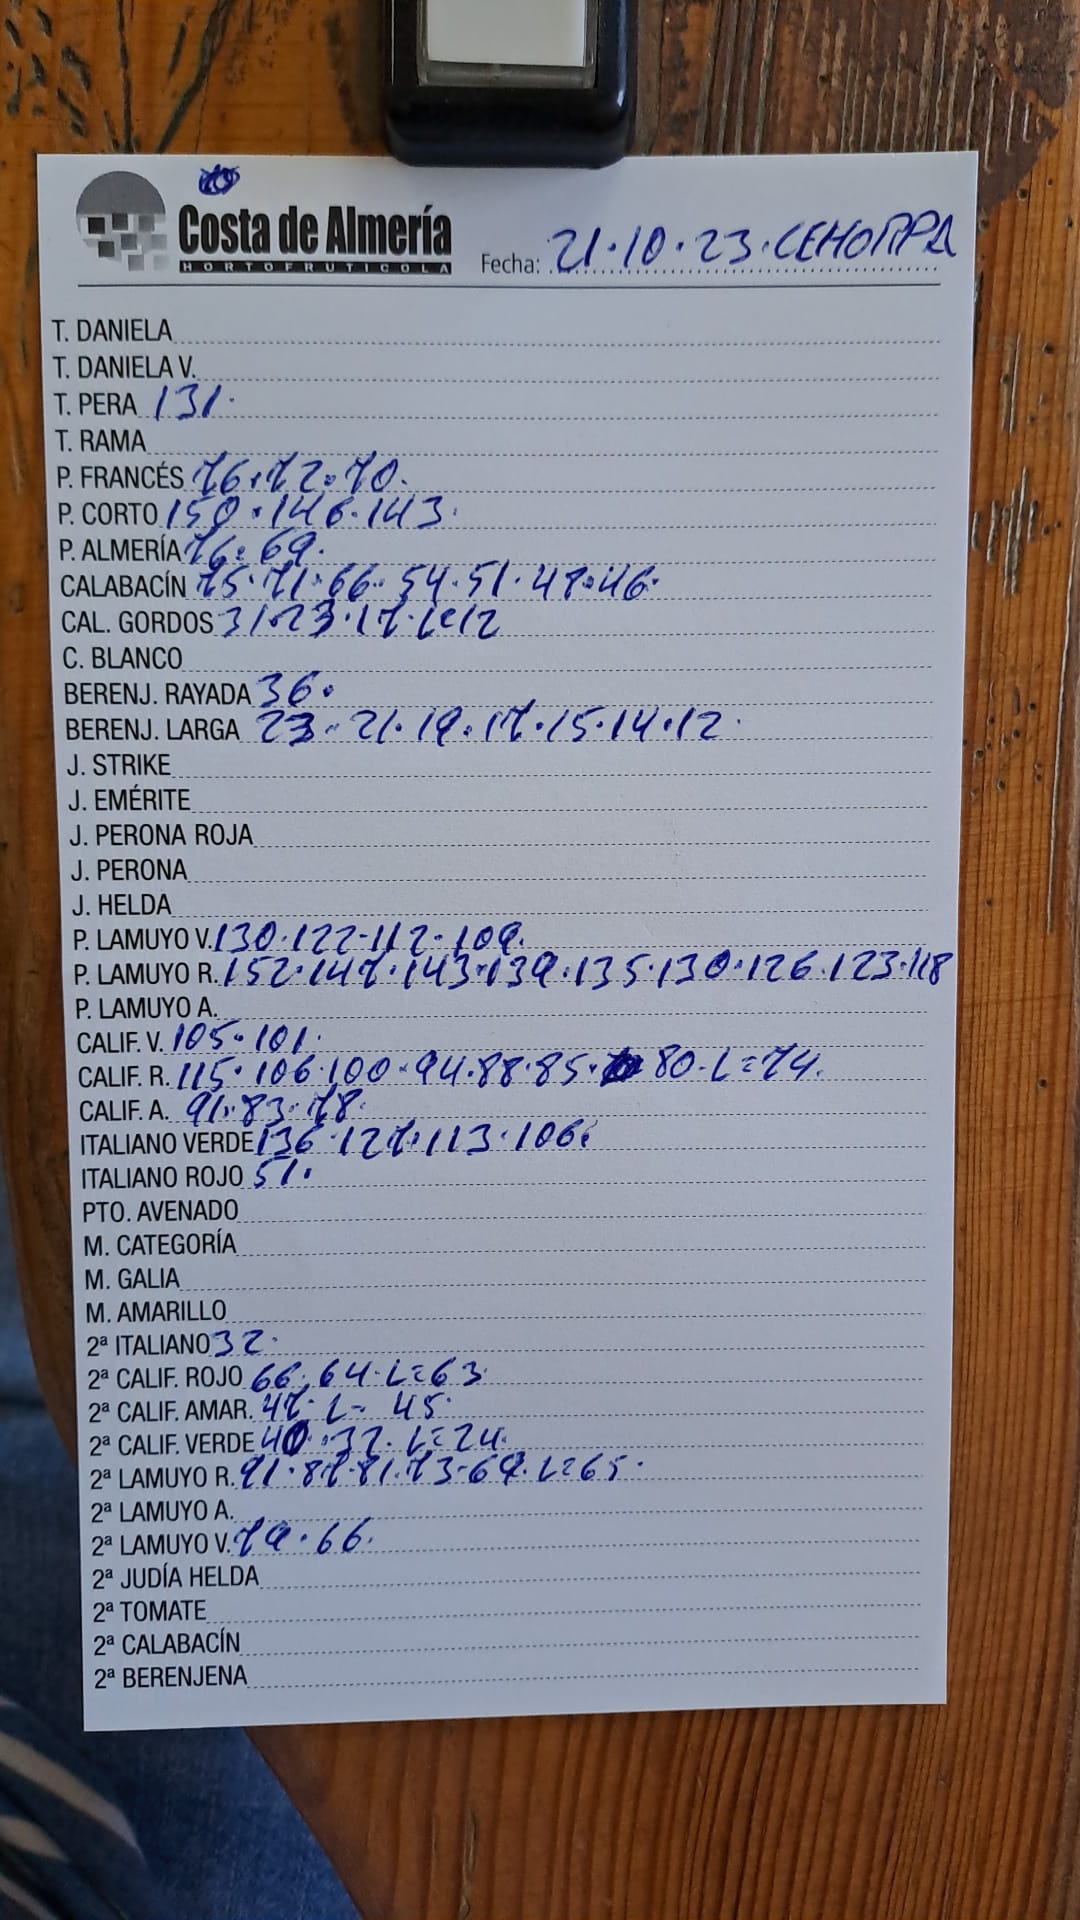 Costa de Almería
HORTOFRUTICOLA
Fecha: 21·10·23·CEHORPA
T. DANIELA
T. DANIELA V.
T. PERA 131·
T. RAMA
P. FRANCÉS 76·72·70·
P. CORTO 150·146·143·
P. ALMERÍA 76·69·
CALABACÍN 75·71·66·54·51·47·46·
CAL. GORDOS 31·23·17·L=12
C. BLANCO
BERENJ. RAYADA 36·
BERENJ. LARGA 23·21·19·17·15·14·12·
J. STRIKE
J. EMÉRITE
J. PERONA ROJA
J. PERONA
J. HELDA
P. LAMUYO V. 130·122·112·109·
P. LAMUYO R. 152·147·143·139·135·130·126·123·118
P. LAMUYO A.
CALIF. V. 105·101·
CALIF. R. 115·106·100·94·88·85·80·L=74·
CALIF. A. 91·83·78·
ITALIANO VERDE 136·127·113·106·
ITALIANO ROJO 51·
PTO. AVENADO
M. CATEGORÍA
M. GALIA
M. AMARILLO
2ª ITALIANO 32·
2ª CALIF. ROJO 66·64·L=63·
2ª CALIF. AMAR. 47·L=45·
2ª CALIF. VERDE 40·32·L=24·
2ª LAMUYO R. 91·87·81·73·69·L=65·
2ª LAMUYO A.
2ª LAMUYO V. 79·66·
2ª JUDÍA HELDA
2ª TOMATE
2ª CALABACÍN
2ª BERENJENA